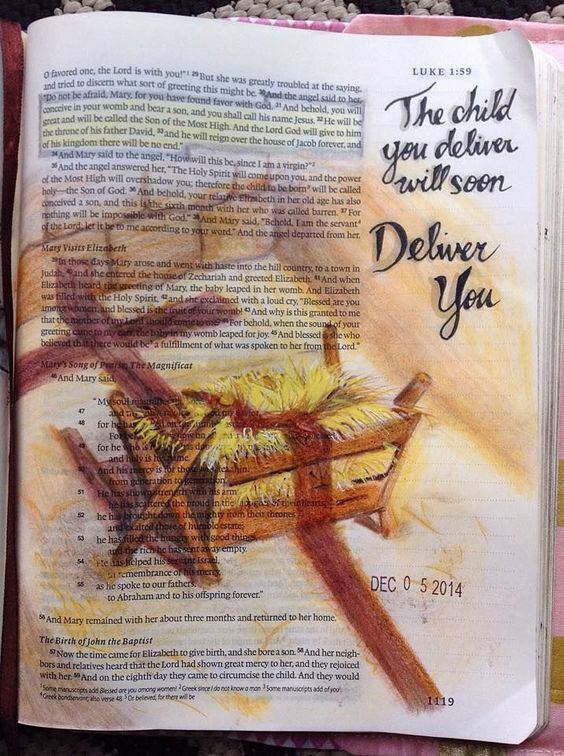 LUKE 1:59
O favored one, the Lord is with you!"¹ 29 But she was greatly troubled at the saying,
and tried to discern what sort of greeting this might be. 30 And the angel said to her,
"Do not be afraid, Mary, for you have found favor with God. 31 And behold, you will
conceive in your womb and bear a son, and you shall call his name Jesus. 32 He will be
great and will be called the Son of the Most High. And the Lord God will give to him
the throne of his father David, 33 and he will reign over the house of Jacob forever, and
of his kingdom there will be no end."
34 And Mary said to the angel, "How will this be, since I am a virgin?"²
35 And the angel answered her, "The Holy Spirit will come upon you, and the power
of the Most High will overshadow you; therefore the child to be born³ will be called
holy—the Son of God. 36 And behold, your relative Elizabeth in her old age has also
conceived a son, and this is the sixth month with her who was called barren. 37 For
nothing will be impossible with God." 38 And Mary said, "Behold, I am the servant⁴
of the Lord; let it be to me according to your word." And the angel departed from her.
Mary Visits Elizabeth
39 In those days Mary arose and went with haste into the hill country, to a town in
Judah, 40 and she entered the house of Zechariah and greeted Elizabeth. 41 And when
Elizabeth heard the greeting of Mary, the baby leaped in her womb. And Elizabeth
was filled with the Holy Spirit, 42 and she exclaimed with a loud cry, "Blessed are you
among women, and blessed is the fruit of your womb! 43 And why is this granted to me
that the mother of my Lord should come to me? 44 For behold, when the sound of your
greeting came to my ears, the baby in my womb leaped for joy. 45 And blessed is she who
believed that there would be⁵ a fulfillment of what was spoken to her from the Lord."
Mary's Song of Praise: The Magnificat
46 And Mary said,
"My soul magnifies
47 and my
48 for he has
For
49 for he who
and holy is his name.
50 And his mercy is for those who fear him
from generation to generation.
51 He has shown strength with his arm;
he has scattered the proud in the thoughts of their hearts;
52 he has brought down the mighty from their thrones
and exalted those of humble estate;
53 he has filled the hungry with good things,
and the rich he has sent away empty.
54 He has helped his servant Israel,
in remembrance of his mercy,
55 as he spoke to our fathers,
to Abraham and to his offspring forever."
56 And Mary remained with her about three months and returned to her home.
The Birth of John the Baptist
57 Now the time came for Elizabeth to give birth, and she bore a son. 58 And her neigh-
bors and relatives heard that the Lord had shown great mercy to her, and they rejoiced
with her. 59 And on the eighth day they came to circumcise the child. And they would
¹ Some manuscripts add Blessed are you among women! ² Greek since I do not know a man ³ Some manuscripts add of you
⁴ Greek bondservant; also verse 48 ⁵ Or believed, for there will be
The child
you deliver
will soon
Deliver
You
DEC 05 2014
1119